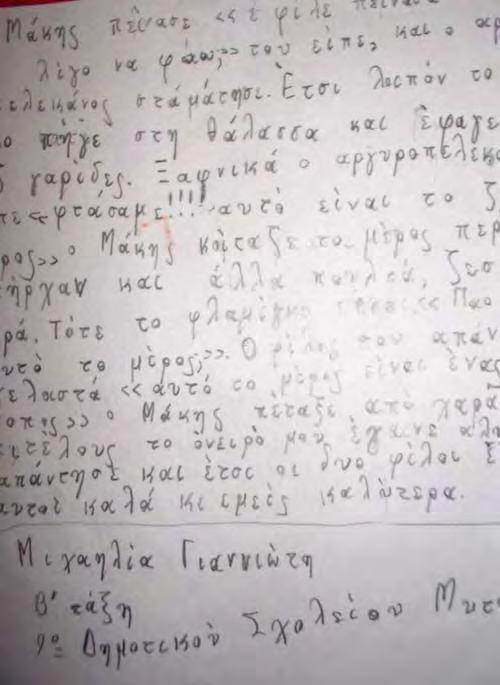 Μάκης πείνασε <<ε φίλε πεινάω
λίγο να φάω;<< του είπε, και ο αρ
ελεκάνος στάματησε. Έτσι λοιπόν το
ο πήγε στη θάλασσα και έφαγε
ς γαρίδες. Ξαφνικά ο αργυροπελεκ
τε >> φτάσαμε!!! αυτό είναι το ζ
ρος<< ο Μάκης κοίταζε το μέρος περ
υπήρχαν και άλλα πουλιά, ζεσ
ρά. Τότε το φλαμίγκο << Που
αυτό το μέρος;<<. Ο φίλος του απάν
γελαστά << αυτό το μέρος είναι ένας
οπος << ο Μάκης πέταξε από χαρά
επιτέλους το όνειρό μου έβγινε αλη
απάντησε και έτσι οι δυο φίλοι ξ
αυτοί καλά κι εμείς καλήτερα.
Μιχαηλία Γιαννιώτη
Β' τάξη
9º Δημοτικού Σχολείου Μυτι